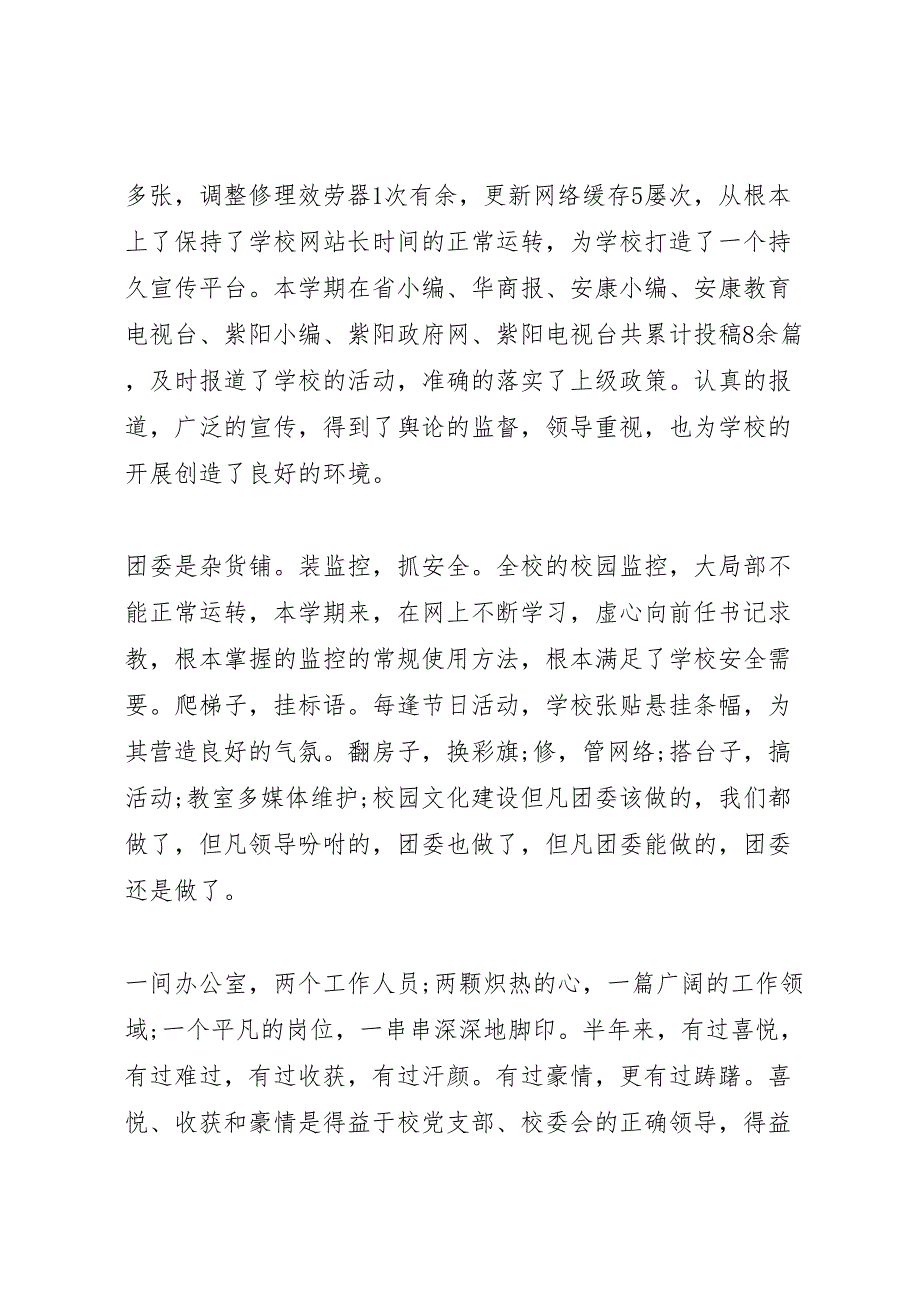 多张，调整修理效劳器1次有余，更新网络缓存5屡次，从根本
上了保持了学校网站长时间的正常运转，为学校打造了一个持
久宣传平台。本学期在省小编、华商报、安康小编、安康教育
电视台、紫阳小编、紫阳政府网、紫阳电视台共累计投稿8余篇
，及时报道了学校的活动，准确的落实了上级政策。认真的报
道，广泛的宣传，得到了舆论的监督，领导重视，也为学校的
开展创造了良好的环境。
团委是杂货铺。装监控，抓安全。全校的校园监控，大局部不
能正常运转，本学期来，在网上不断学习，虚心向前任书记求
教，根本掌握的监控的常规使用方法，根本满足了学校安全需
要。爬梯子，挂标语。每逢节日活动，学校张贴悬挂条幅，为
其营造良好的气氛。翻房子，换彩旗;修，管网络;搭台子，搞
活动;教室多媒体维护;校园文化建设但凡团委该做的，我们都
做了，但凡领导吩咐的，团委也做了，但凡团委能做的，团委
还是做了。
一间办公室，两个工作人员;两颗炽热的心，一篇广阔的工作领
域;一个平凡的岗位，一串串深深地脚印。半年来，有过喜悦，
有过难过，有过收获，有过汗颜。有过豪情，更有过踌躇。喜
悦、收获和豪情是得益于校党支部、校委会的正确领导，得益